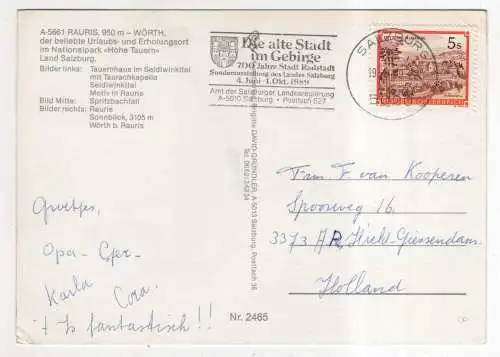 A-5661 RAURIS, 950 m – WÖRTH,
der beliebte Urlaubs- und Erholungsort
im Nationalpark «Hohe Tauern»
Land Salzburg.
Bilder links: Tauernhaus im Seidlwinkltal
mit Taurachkapelle
Seidlwinkltal
Motiv in Rauris
Bild Mitte: Spritzbachfall
Bilder rechts: Rauris
Sonnblick, 3105 m
Wörth b. Rauris
Die alte Stadt
im Gebirge
700 Jahre Stadt Radstadt
Sonderausstellung des Landes Salzburg
4. Juni - 1. Okt. 1989
Amt der Salzburger Landesregierung
A-5010 Salzburg • Postfach 527
5s
Brigitte DAVID-GRÜNDLER, A-5013 Salzburg, Postfach 36
Tel. 0662/34234
Groetjes,
Opa - Ger
Karla Cora.
't Is fantastisch!!
Fam F van Kooperen
Spoorweg 16
3373 AR, Hickt-Giessendam.
Holland
Nr. 2465